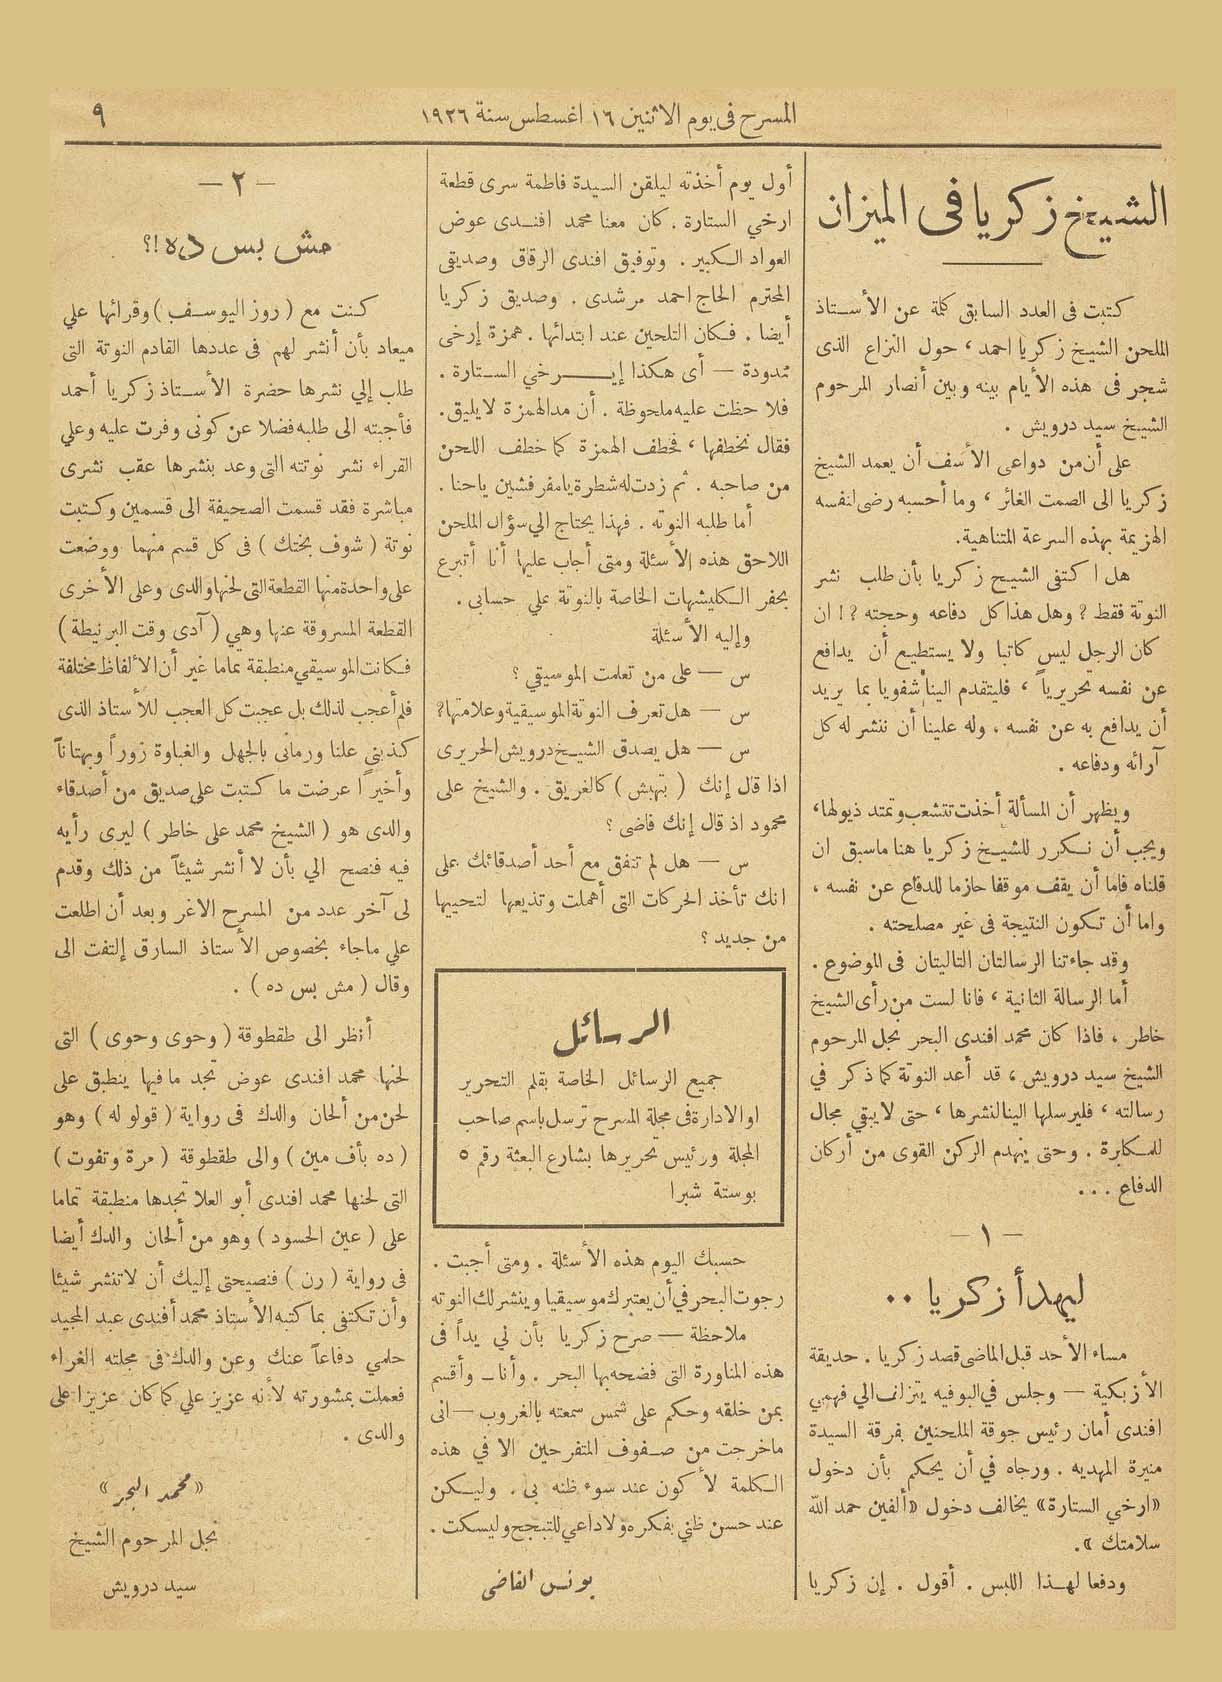 المسرح فى يوم الاثنين ١٦ اغسطس سنة ١٩٢٦
٩
الشيخ زكريا فى الميزان
كتبت فى العدد السابق كلمة عن الأستاذ
الملحن الشيخ زكريا احمد، حول النزاع الذى
شجر فى هذه الأيام بينه وبين أنصار المرحوم
الشيخ سيد درويش .
على أن من دواعى الأسف أن يعمد الشيخ
زكريا الى الصمت الغائر، وما أحسبه رضى لنفسه
الهزيمة بهذه السرعة المتناهية.
هل اكتفى الشيخ زكريا بأن طلب نشر
النوتة فقط ? وهل هذا كل دفاعه وحجته ?! ان
كان الرجل ليس كاتبا ولا يستطيع أن يدافع
عن نفسه تحريرياً ، فليتقدم الينا شفويا بما يريد
أن يدافع به عن نفسه ، وله علينا أن ننشر له كل
آرائه ودفاعه .
ويظهر أن المسألة أخذت تتشعب وتمتد ذيولها،
ويجب أن نكرر للشيخ زكريا هنا ماسبق ان
قلناه فاما أن يقف موقفا حازما للدفاع عن نفسه ،
واما أن تكون النتيجة فى غير مصلحته .
وقد جاءتنا الرسالتان التاليتان فى الموضوع .
أما الرسالة الثانية ، فانا لست من رأى الشيخ
خاطر ، فاذا كان محمد افندى البحر نجل المرحوم
الشيخ سيد درويش ، قد أعد النوتة كما ذكر في
رسالته ، فليرسلها الينا لنشرها ، حتى لا يبقي مجال
للمكابرة . وحتى ينهدم الركن القوى من أركان
الدفاع ...
— ١ —
ليهدأ زكريا ..
مساء الأحد قبل الماضى قصد زكريا . حديقة
الأزبكية — وجلس في البوفيه يتزلف الي فهمي
افندى أمان رئيس جوقة الملحنين بفرقة السيدة
منيرة المهديه . ورجاه في أن يحكم بأن دخول
«ارخي الستارة» يخالف دخول «ألفين حمد الله
سلامتك» .
ودفعا لهذا اللبس . أقول . إن زكريا
أول يوم أخذته ليلقن السيدة فاطمة سرى قطعة
ارخي الستارة . كان معنا محمد افندى عوض
العواد الكبير . وتوفيق افندى الرقاق وصديقى
المحترم الحاج احمد مرشدى . وصديق زكريا
أيضا . فكان التلحين عند ابتدائها . همزة إرخى
ممدودة — أى هكذا إيـــرخي الستارة .
فلاحظت عليه ملحوظة . أن مد الهمزة لا يليق.
فقال نخطفها ، فخطف الهمزة كما خطف اللحن
من صاحبه . ثم زدت له شطرة يا مفرفشين ياحنا .
أما طلبه النوته . فهذا يحتاج الي سؤال الملحن
اللاحق هذه الأسئلة ومتى أجاب عليها أنا أتبرع
بحفر الكليشهات الخاصة بالنوتة علي حسابى .
وإليه الأسئلة
س — على من تعلمت الموسيقي ؟
س — هل تعرف النوتة الموسيقية وعلامتها?
س — هل يصدق الشيخ درويش الحريرى
اذا قال إنك ( تهبش ) كالغريق . والشيخ على
محمود اذ قال إنك فاضى ؟
س — هل لم تتفق مع أحد أصدقائك على
انك تأخذ الحركات التى أهملت وتذيعها لتحييها
من جديد ؟
الرسائل
جميع الرسائل الخاصة بقلم التحرير
او الادارة فى مجلة المسرح ترسل باسم صاحب
المجلة ورئيس تحريرها بشارع البعثة رقم ٥
بوستة شبرا
حسبك اليوم هذه الأسئلة . ومتى أجبت .
رجوت البحر في أن يعتبرك موسيقيا وينشر لك النوته
ملاحظة — صرح زكريا بأن لي يداً فى
هذه المناورة التى فضحه بها البحر . وأنا ــ وأقسم
بمن خلقه وحكم على شمس سمعته بالغروب — انى
ماخرجت من صفوف المتفرحين الا في هذه
الكلمة لأكون عند سوء ظنه بى . وليكن
عند حسن ظني بفكره ولاداعي للتبجح وليسكت .
يونس القاضى
— ٢ —
مش بس ده !؟
كنت مع ( روز اليوسف ) وقرائها علي
ميعاد بأن أنشر لهم فى عددها القادم النوتة التى
طلب إلي نشرها حضرة الأستاذ زكريا أحمد
فأجبته الى طلبه فضلا عن كونى وفرت عليه وعلي
القراء نشر نوتته التى وعد بنشرها عقب نشرى
مباشرة فقد قسمت الصحيفة الى قسمين وكتبت
نوتة ( شوف بختك ) فى كل قسم منهما ووضعت
على واحدة منها القطعة التى لحنها والدى وعلى الأخرى
القطعة المسروقة عنها وهي ( آدى وقت البرنيطة )
فكانت الموسيقي منطبقة تماما غير أن الألفاظ مختلفة
فلم أعجب لذلك بل عجبت كل العجب للأستاذ الذى
كذبنى علنا ورمانى بالجهل والغباوة زوراً وبهتاناً
وأخيراً عرضت ما كتبت على صديق من أصدقاء
والدى هو ( الشيخ محمد على خاطر ) ليرى رأيه
فيه فنصح الي بأن لا أنشر شيئاً من ذلك وقدم
لى آخر عدد من المسرح الاغر وبعد أن اطلعت
علي ماجاء بخصوص الأستاذ السارق إلتفت الى
وقال ( مش بس ده ) .
أنظر الى طقطوقة ( وحوى وحوى ) التى
لحنها محمد افندى عوض تجد ما فيها ينطبق على
لحن من ألحان والدك فى رواية ( قولو له ) وهو
( ده بأف مين ) والى طقطوقة ( مرة وتفوت )
التى لحنها محمد افندى أبو العلا تجدها منطبقة تماما
على ( عين الحسود ) وهو من ألحان والدك أيضا
فى رواية ( رن ) فنصيحتى إليك أن لا تنشر شيئا
وأن تكتفى بما كتبه الأستاذ محمد أفندى عبد المجيد
حلمي دفاعاً عنك وعن والدك فى مجلته الغراء
فعملت بمشورته لأنه عزيز علي كما كان عزيزا على
والدى .
«محمد البحر»
نجل المرحوم الشيخ
سيد درويش